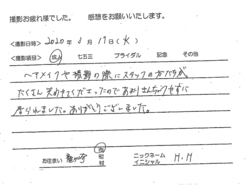 撮影お疲れ様でした。 感想をお願いいたします。
<撮影日時> 2020年 3月17日(火)
<撮影項目> 成人 七五三 ブライダル 記念 その他
ヘアメイクや撮影の際にスタッフの方たちが
たくさん笑わせてくださったのであまりきんちょうせずに
とりました。ありがとうございました。
お住まい 市 町 村 ニックネーム イニシャル M.H